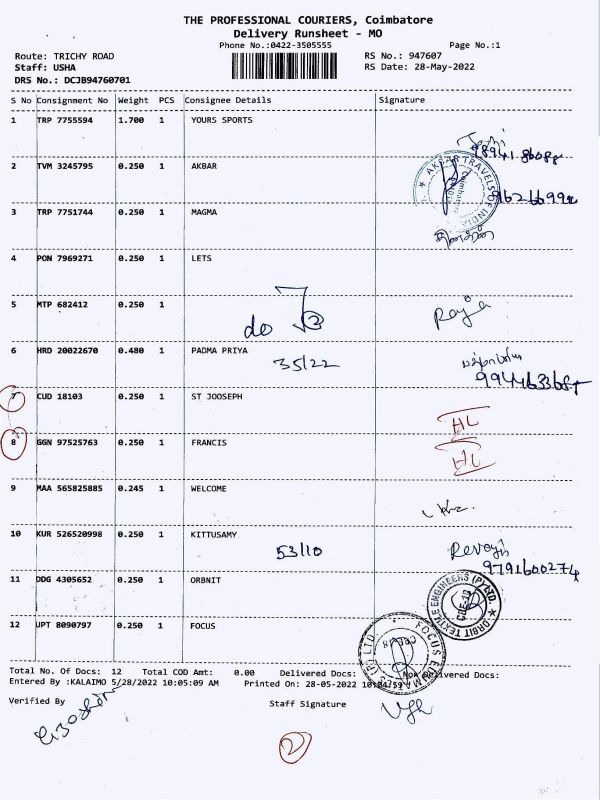 THE PROFESSIONAL COURIERS, Coimbatore
Delivery Runsheet - MO
Phone No.:0422-3505555 Page No.:1
Route: TRICHY ROAD RS No.: 947607
Staff: USHA RS Date: 28-May-2022
DRS No.: DCJB94760701
S No Consignment No Weight PCS Consignee Details Signature
1 TRP 7755594 1.700 1 YOURS SPORTS
2 TVM 3245795 0.250 1 AKBAR
AKBAR TRAVELS OF INDIA
3 TRP 7751744 0.250 1 MAGMA
4 PON 7969271 0.250 1 LETS
5 MTP 682412 0.250 1
do Raja
6 HRD 20022670 0.480 1 PADMA PRIYA
35/22
7 CUD 18103 0.250 1 ST JOOSEPH
HL
8 GGN 97525763 0.250 1 FRANCIS
HL
9 MAA 565825885 0.245 1 WELCOME
10 KUR 526520998 0.250 1 KITTUSAMY
53/10
9791600274
11 DDG 4305652 0.250 1 ORBNIT
ORBIT TEXTILE ENGINEERS (P) LTD.
12 UPT 8090797 0.250 1 FOCUS
Total No. Of Docs: 12 Total COD Amt: 0.00 Delivered Docs: Non Delivered Docs:
Entered By :KALAIMO 5/28/2022 10:05:09 AM Printed On: 28-05-2022 10:04:59
Verified By Staff Signature
2